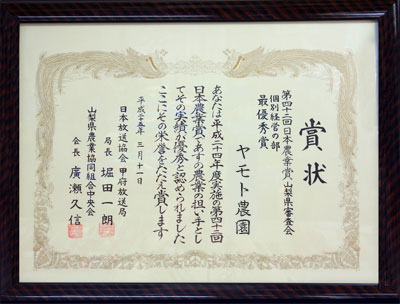 賞状
第四十二回日本農業賞山梨県審査会
個別経営の部
最優秀賞
ヤモト農園
あなたは平成二十四年度実施の第四十二回
日本農業賞であすの農業の担い手とし
てその実績が優秀と認められました
ここにその栄誉をたたえ賞します
平成二十五年 三月十一日
日本放送協会 甲府放送局
局長 堀田一朗
山梨県農業協同組合中央会
会長 廣瀬久信